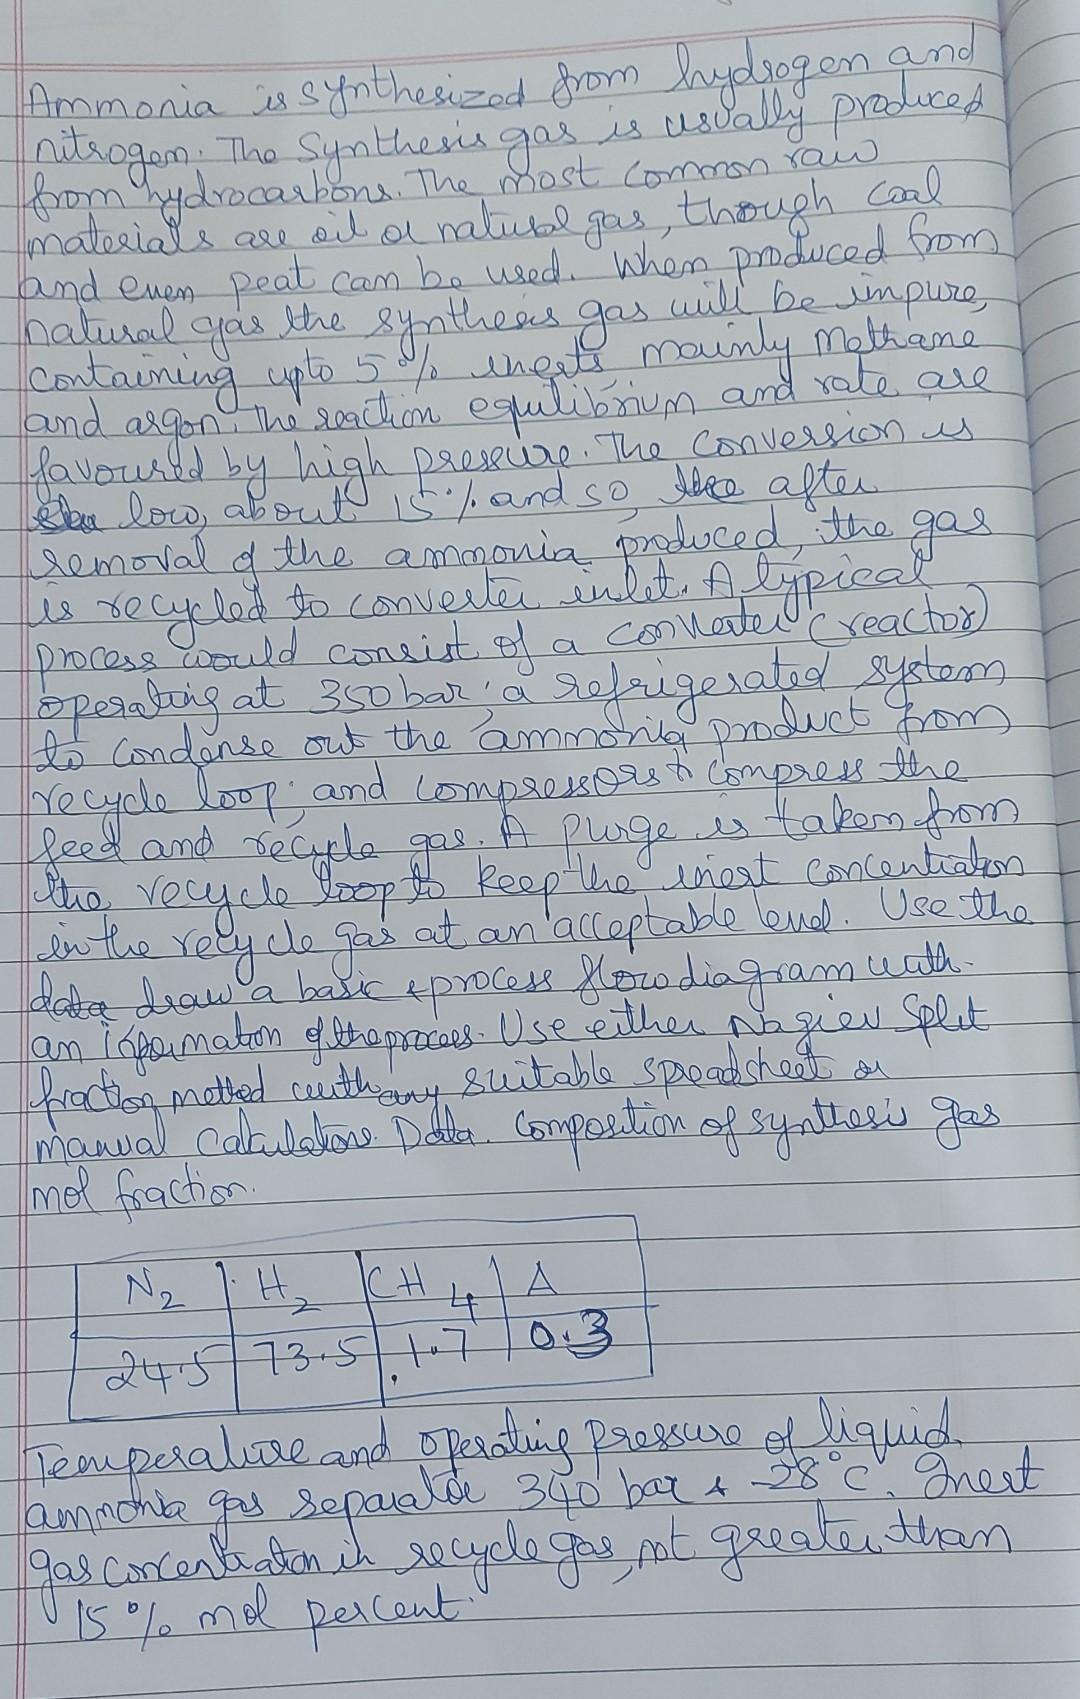 Ammonia is synthesized from hydrogen and
nitrogen. The Synthesis gas is usually produced
from hydrocarbons. The most common raw
materials are oil or natural gas, though coal
and even peat can be used. When produced from
natural gas the synthesis gas will be impure,
containing upto 5% inerts mainly Methane
and argon. The reaction equilibrium and rate are
favoured by high pressure. The conversion is
low, about 15% and so, after
removal of the ammonia produced, the gas
is recycled to converter inlet. A typical
process would consist of a converter (reactor)
operating at 350 bar; a refrigerated system
to condense out the ammonia product from
recycle loop; and compressors to compress the
feed and recycle gas. A purge is taken from
the recycle loop to keep the inert concentration
in the recycle gas at an acceptable level. Use the
data draw a basic process flow diagram with
an information of the process. Use either Nagiev Split
fraction method with any suitable spreadsheet or
manual calculations. Data. Composition of synthesis gas
mol fraction.
N2 H2 CH4 A
24.5 73.5 1.7 0.3
Temperature and operating pressure of liquid
ammonia gas separator 340 bar & -28°C. Inert
gas concentration in recycle gas, not greater than
15% mol percent.